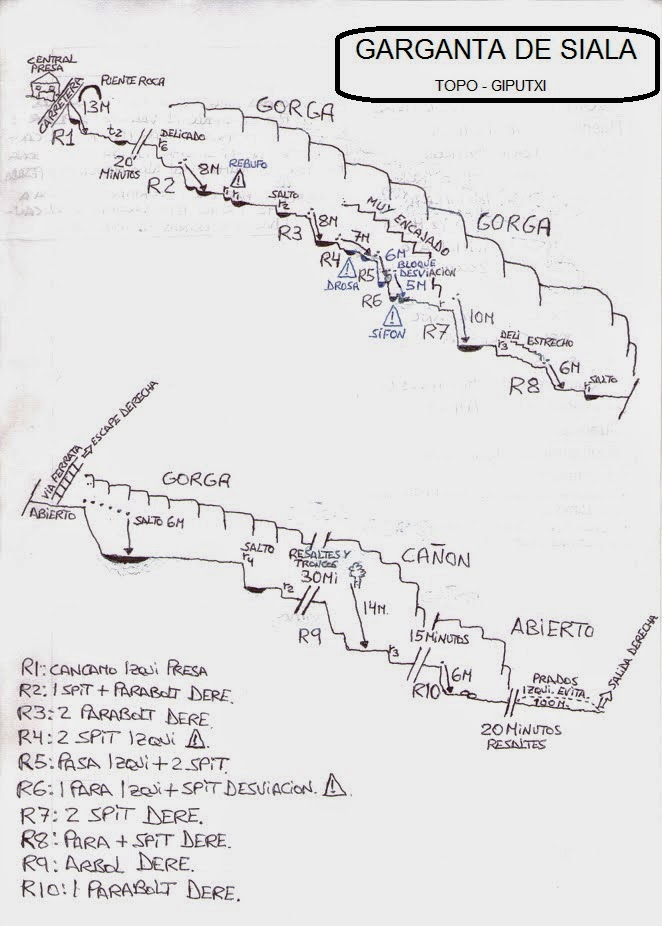 GARGANTA DE SIALA
TOPO - GIPUTXI
CENTRAL
PRESA
PUENTE ROCA
CARRETERA
13M
R1
t2
20'
MINUTOS
DELICADO
r6
R2
8M
REBUFO
r1
SALTO
r2
GORGA
R3
8M
7M
MUY ENCAJADO
R4
DROSA
R5
6M
BLOQUE
DESVIACION
5M
R6
SIFON
GORGA
r
R7
10M
DELI
ESTRECHO
r3
R8
6M
SALTO
r
VIA FERRATA
ESCAPE DERECHA
ABIERTO
GORGA
SALTO 6M
SALTO
r4
r2
RESALTES Y
TRONCOS
30Mi
R9
14M.
r3
CAÑON
15 MINUTOS
R10
6M
ABIERTO
PRADOS
IZQUI. EVITA.
100M.
SALIDA DERECHA
20 MINUTOS
RESALTES
R1: CANCAMO IZQUI PRESA
R2: 1 SPIT + PARABOLT DERE.
R3: 2 PARABOLT DERE.
R4: 2 SPIT IZQUI
R5: PASA IZQUI + 2 SPIT.
R6: 1 PARA IZQUI + SPIT DESVIACION.
R7: 2 SPIT DERE.
R8: PARA + SPIT DERE.
R9: ARBOL DERE.
R10: 1 PARABOLT DERE.